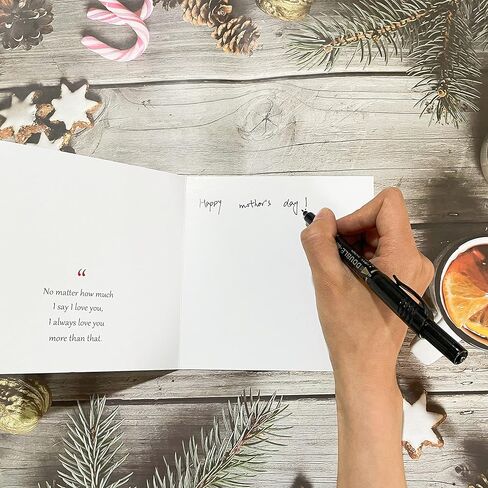 “
No matter how much
I say I love you,
I always love you
more than that.
Happy mother's day!
DOUBLE